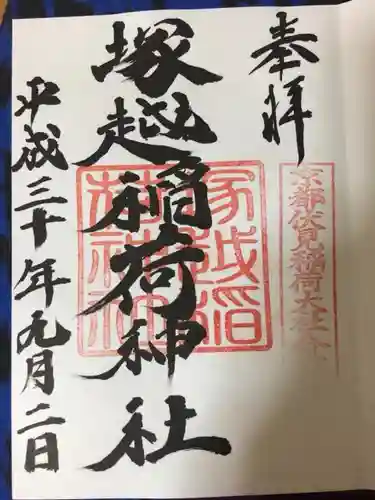 奉拝
京都伏見稲荷大社
塚越稲荷神社
平成三十年九月二日